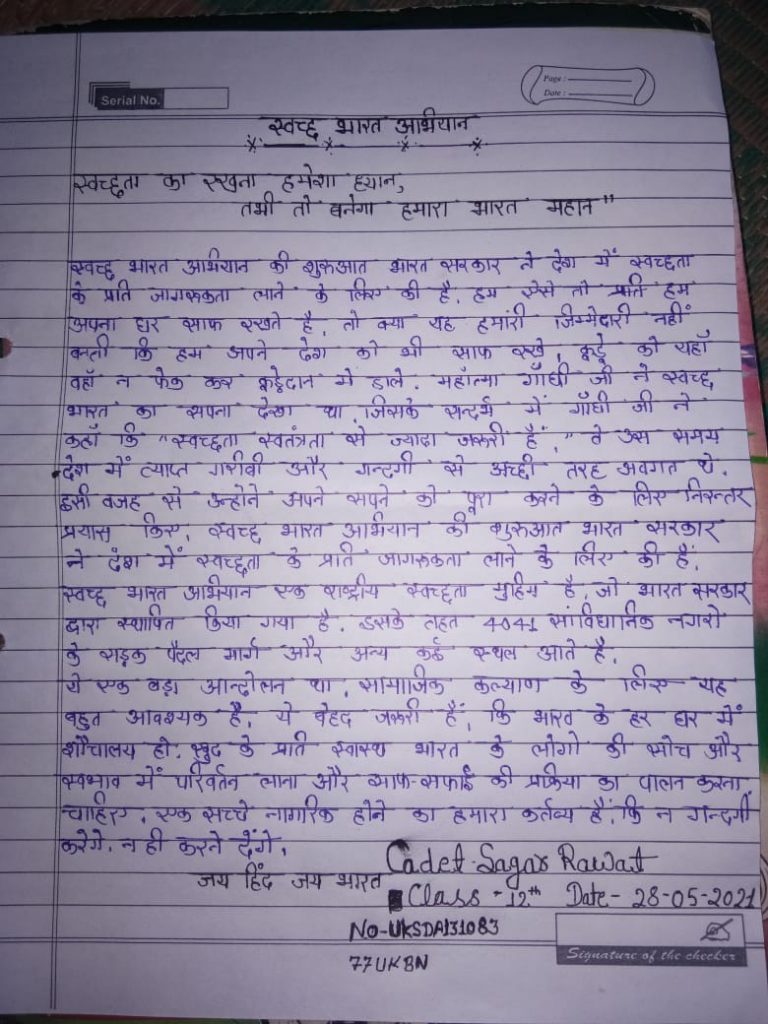 Serial No.
Page :
Date :
स्वच्छ भारत अभियान
स्वच्छता का रखना हमेशा ध्यान,
तभी तो बनेगा हमारा भारत महान"
स्वच्छ भारत अभियान की शुरुआत भारत सरकार ने देश में स्वच्छता
के प्रति जागरूकता लाने के लिए की है. हम ऐसे तो प्रति हम
अपना घर साफ रखते है, तो क्या यह हमांरी जिम्मेदारी नहीं
बनती कि हम अपने देश को भी साफ रखे, कूड़े को यहाँ
वहाँ न फेक कर कूड़ेदान मे डाले. महाँत्मा गाँधी जी ने स्वच्छ
भारत का सपना देखा था जिसके सन्दर्भ में गाँधी जी ने
कहाँ कि "स्वच्छता स्वतंत्रता से ज्यादा जरूरी हैं," वे उस समय
देश में व्याप्त गरीबी और गन्दगी से अच्छी तरह अवगत थे.
इसी वजह से उन्होने अपने सपने को पूरा करने के लिए निरन्तर
प्रयास किए, स्वच्छ भारत अभियान की शुरुआत भारत सरकार
ने देश में स्वच्छता के प्रति जागरूकता लाने के लिए की हैं.
स्वच्छ भारत अभियान एक राष्ट्रीय स्वच्छता मुहिम है, जो भारत सरकार
द्वारा स्थापित किया गया है. इसके तहत 4041 सांविधानिक नगरो
के सड़क पैदल मार्ग और अन्य कई स्थल आते है.
ये एक बड़ा आन्दोलन था, सामाजिक कल्याण के लिए यह
बहुत आवश्यक है, ये बेहद जरूरी हैं, कि भारत के हर घर में
शौचालय हो. खुद के प्रति स्वास्थ भारत के लोगो की सोच और
स्वभाव में परिवर्तन लाना और साफ-सफाई की प्रक्रिया का पालन करना
चाहिए. एक सच्चे नागरिक होने का हमारा कर्तव्य हैं, कि न गन्दगी
करेगे. न ही करने देंगे.
जय हिंद जय भारत
Cadet-Sagar Rawat
Class - 12th Date- 28-05-2021
No-UKSDA131083
77UKBN
Signature of the checker